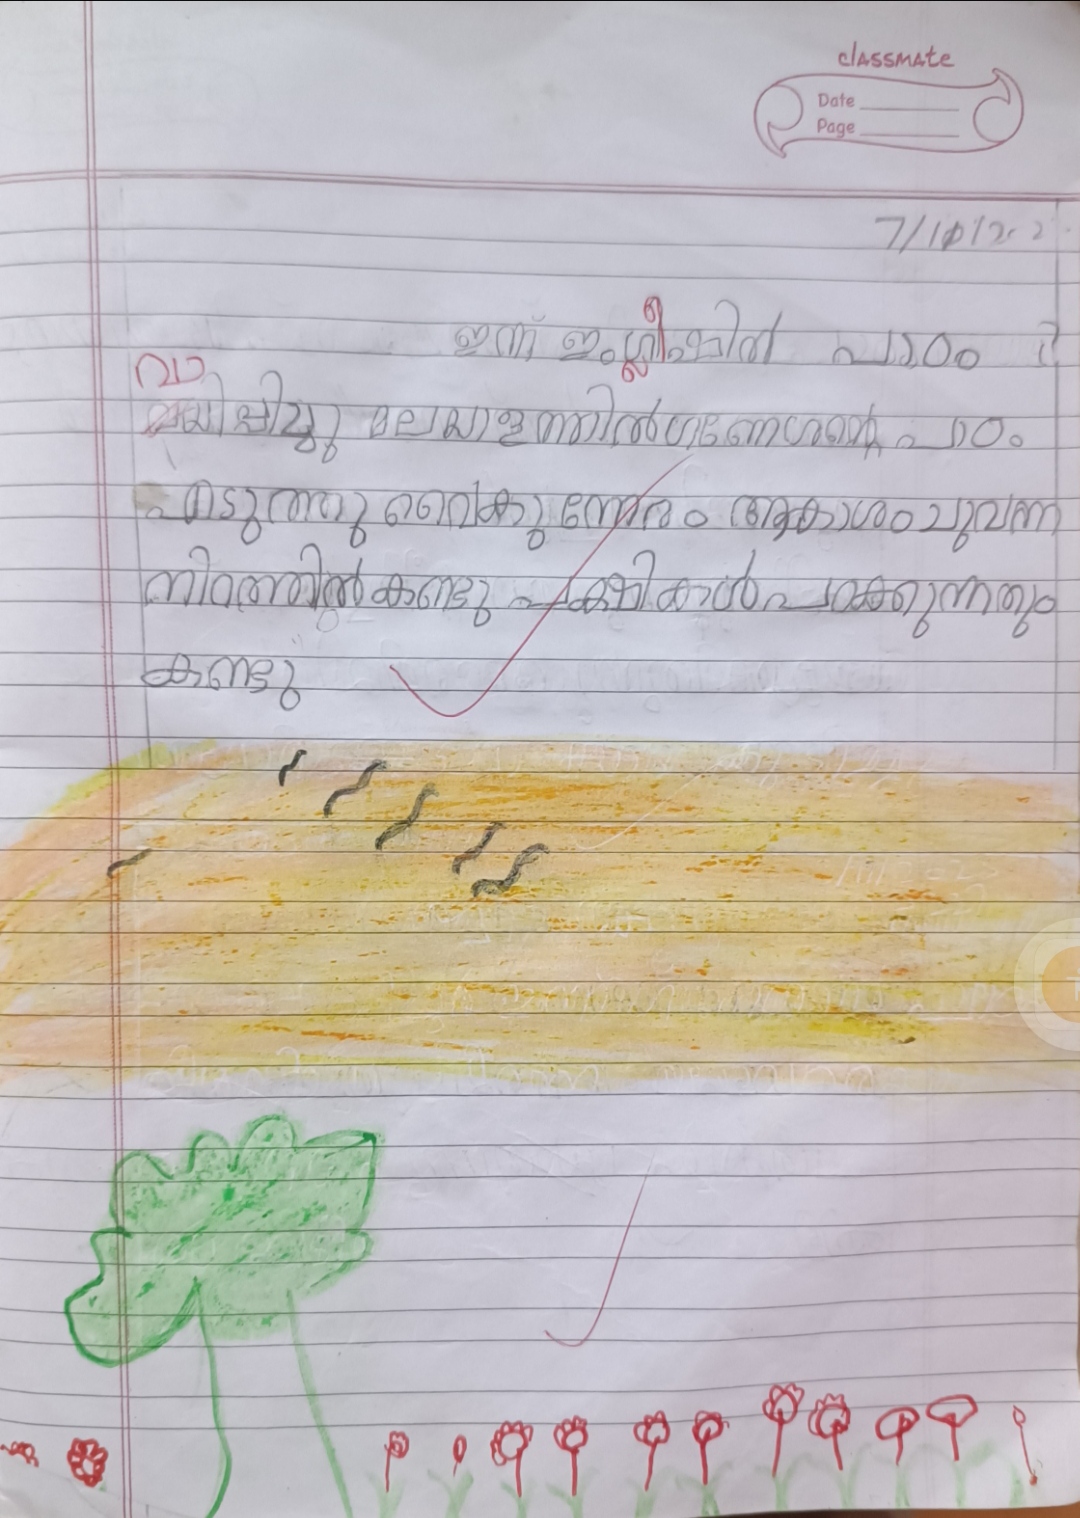 classmate
Date
Page
7/10/202
ഇന്ന് ഇംഗ്ലീഷിൽ പാഠം
വാ
യിപ്പിച്ചു മലയാളത്തിൽ ഗണേശന്റെ പാഠം
എടുത്തു വൈകുന്നേരം ആകാശം ചുവന്ന
നിറത്തിൽ കണ്ടു പക്ഷികൾ പറക്കുന്നതും
കണ്ടു